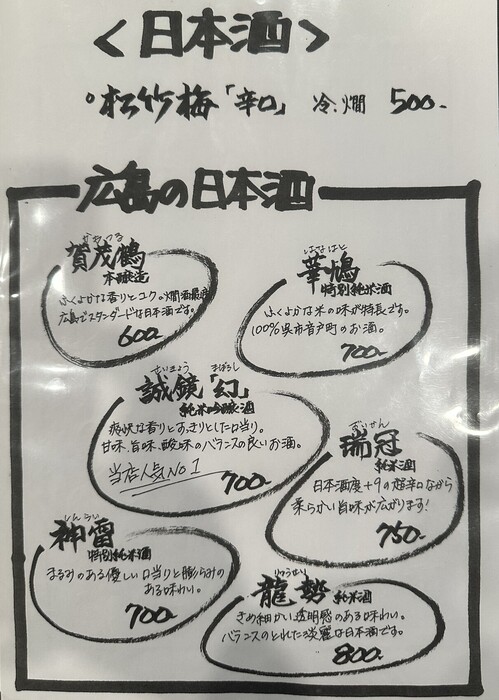 〈日本酒〉
○松竹梅「辛口」 冷.燗 500-
広島の日本酒
かもつる
賀茂鶴
本醸造
ふくよかな香りとコク。燗酒最高
広島でスタンダードな日本酒です。
600-
はなはと
華鳩
特別純米酒
ふくよかな米の味が特長です。
100%呉市音戸町のお酒。
700-
せいきょう まぼろし
誠鏡「幻」
純米吟醸酒
爽快な香りとすっきりとした口当り。
甘味、旨味、酸味のバランスの良いお酒。
当店人気NO1
700-
ずいかん
瑞冠
純米酒
日本酒度+9の超辛口ながら
柔らかい旨味が広がります!
750-
しんらい
神雷
特別純米酒
まるみのある優しい口当りと膨らみの
ある味わい。
700-
りゅうせい
龍勢 純米酒
きめ細かい透明感のある味わい。
バランスのとれた淡麗な日本酒です。
800-